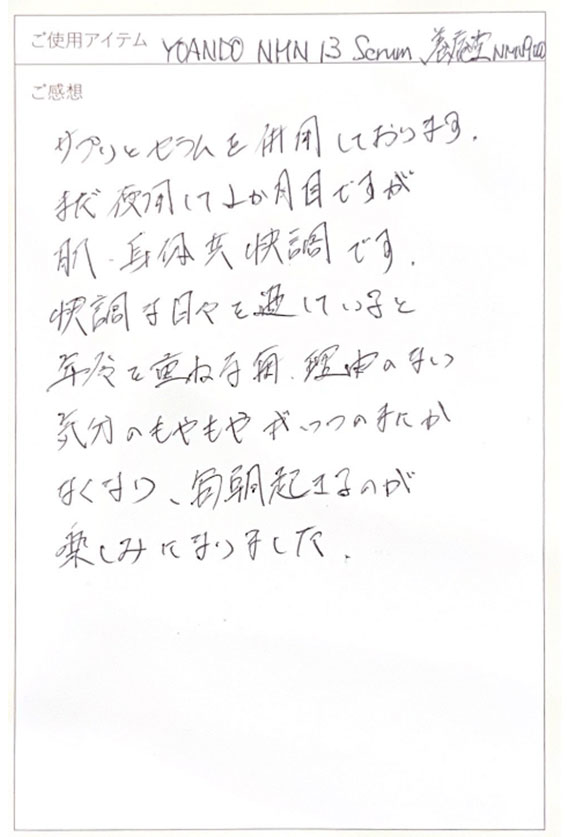 ご使用アイテム YOANDO NMN 13 Serum、養安堂NMN9000
ご感想
サプリとセラムを併用しております。
まだ使用して1か月目ですが
肌・身体共快調です。
快調な日々を過していると
年令を重ねる毎、理由のない
気分のもやもやがいつのまにか
なくなり、毎朝起きるのが
楽しみになりました。